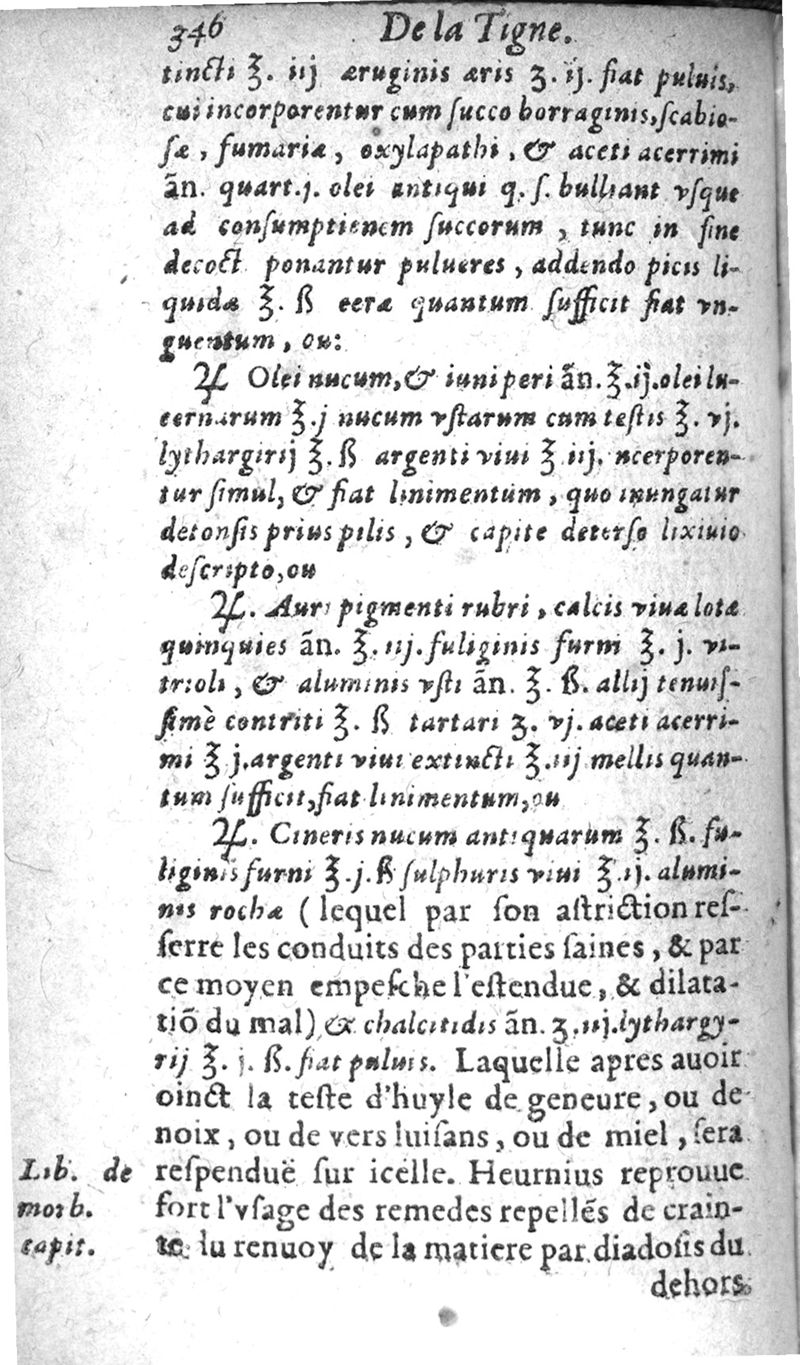 346 De la Tigne.
tincti ℥. iij æruginis æris ʒ. ij. fiat puluis,
cui incorporentur cum ſucco borraginis, ſcabio-
ſæ, fumariæ, oxylapathi, & aceti acerrimi
ãn. quart. j. olei antiqui q. ſ. bulliant vſque
ad conſumptienem ſuccorum, tunc in fine
decoct ponantur pulueres, addendo picis li-
quidæ ℥. ß eeræ quantum ſufficit fiat vn-
guentum, ou:
♃ Olei nucum, & iuniperi ãn. ℥. ij. olei lu-
eernarum ℥. j nucum vſtarum cum teſtis ℥. vj.
lythargirij ℥. ß argenti viui ℥ iij. ncerporen-
tur ſimul, & fiat linimentum, quo inungatur
detonſis prius pilis, & capite deterſo lixiuio
deſcripto, ou
♃. Auri pigmenti rubri, calcis viuæ lotæ
quinquies ãn. ℥. iij. fuliginis furni ℥. j. vi-
trioli, & aluminis vſti ãn. ℥. ß. allij tenuiſ-
ſimè contriti ℥. ß tartari ʒ. vj. aceti acerri-
mi ℥ j. argenti viui extincti ℥. iij mellis quan-
tum ſufficit, fiat linimentum, ou
♃. Cineris nucum antiquarum ℥. ß. fu-
liginis furni ℥. j. ß ſulphuris viui ℥. ij. alumi-
nis rochæ (lequel par ſon aſtriction reſ-
ſerre les conduits des parties ſaines, & par
ce moyen empeſche l'eſtendue, & dilata-
tiõ du mal) & chalcitidis ãn. ʒ. iij. lythargy-
rij ℥. j. ß. fiat puluis. Laquelle apres auoir
oinct la teſte d'huyle de geneure, ou de
noix, ou de vers luiſans, ou de miel, ſera
reſpenduë ſur icelle. Heurnius reprouue
fort l'vſage des remedes repellẽs de crain-
te lu renuoy de la matiere par diadoſis du
dehors
Lib. de
morb.
capit.